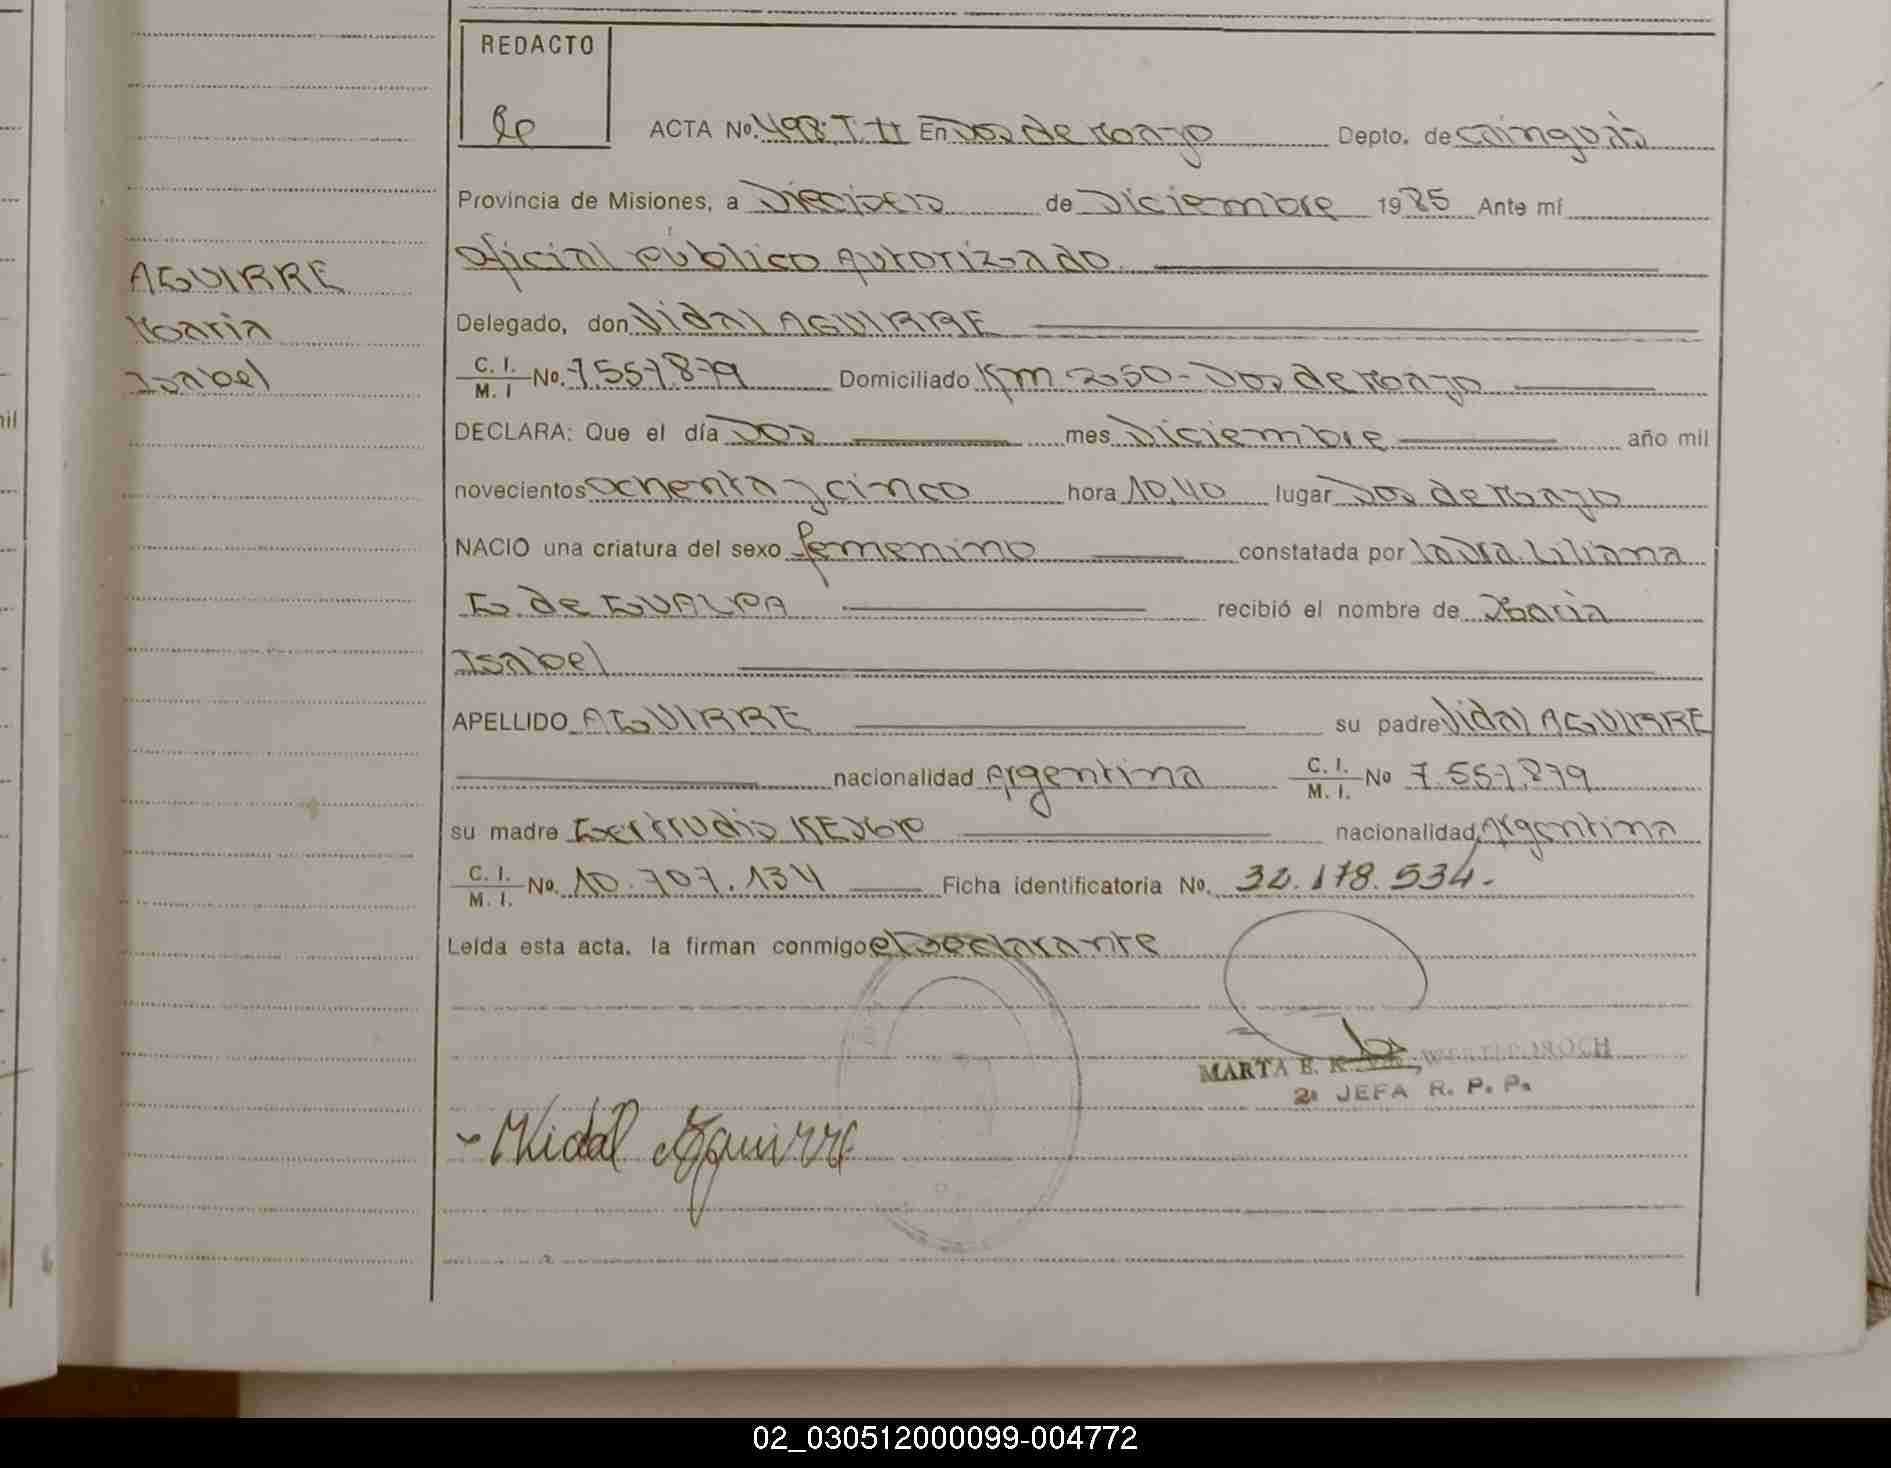 REDACTO
ACTA No. 498. T. II En Dos de Mayo Depto. de Cainguás
Provincia de Misiones, a Dieciseis de Diciembre 1985 Ante mí
Oficial Público Autorizado
AGUIRRE
Delegado, don Vidal AGUIRRE
Maria
C. I. M. I No. 7.557.879 Domiciliado Km 250 - Dos de Mayo
Isabel
DECLARA: Que el día Dos mes Diciembre año mil
novecientos ochenta y cinco hora 10,40 lugar Dos de Mayo
NACIO una criatura del sexo femenino constatada por la Dra. Liliana
G. de GUALPA recibió el nombre de Maria
Isabel
APELLIDO AGUIRRE su padre Vidal AGUIRRE
nacionalidad Argentina C. I. M. I. No 7.557.879
su madre Gertrudis nacionalidad Argentina
C. I. M. I. No. 10.707.134 Ficha identificatoria No. 32.178.534.-
Leída esta acta, la firman conmigo el Declarante
MARTA E. K.
2ª JEFA R. P. P.
Vidal Aguirre
02_030512000099-004772